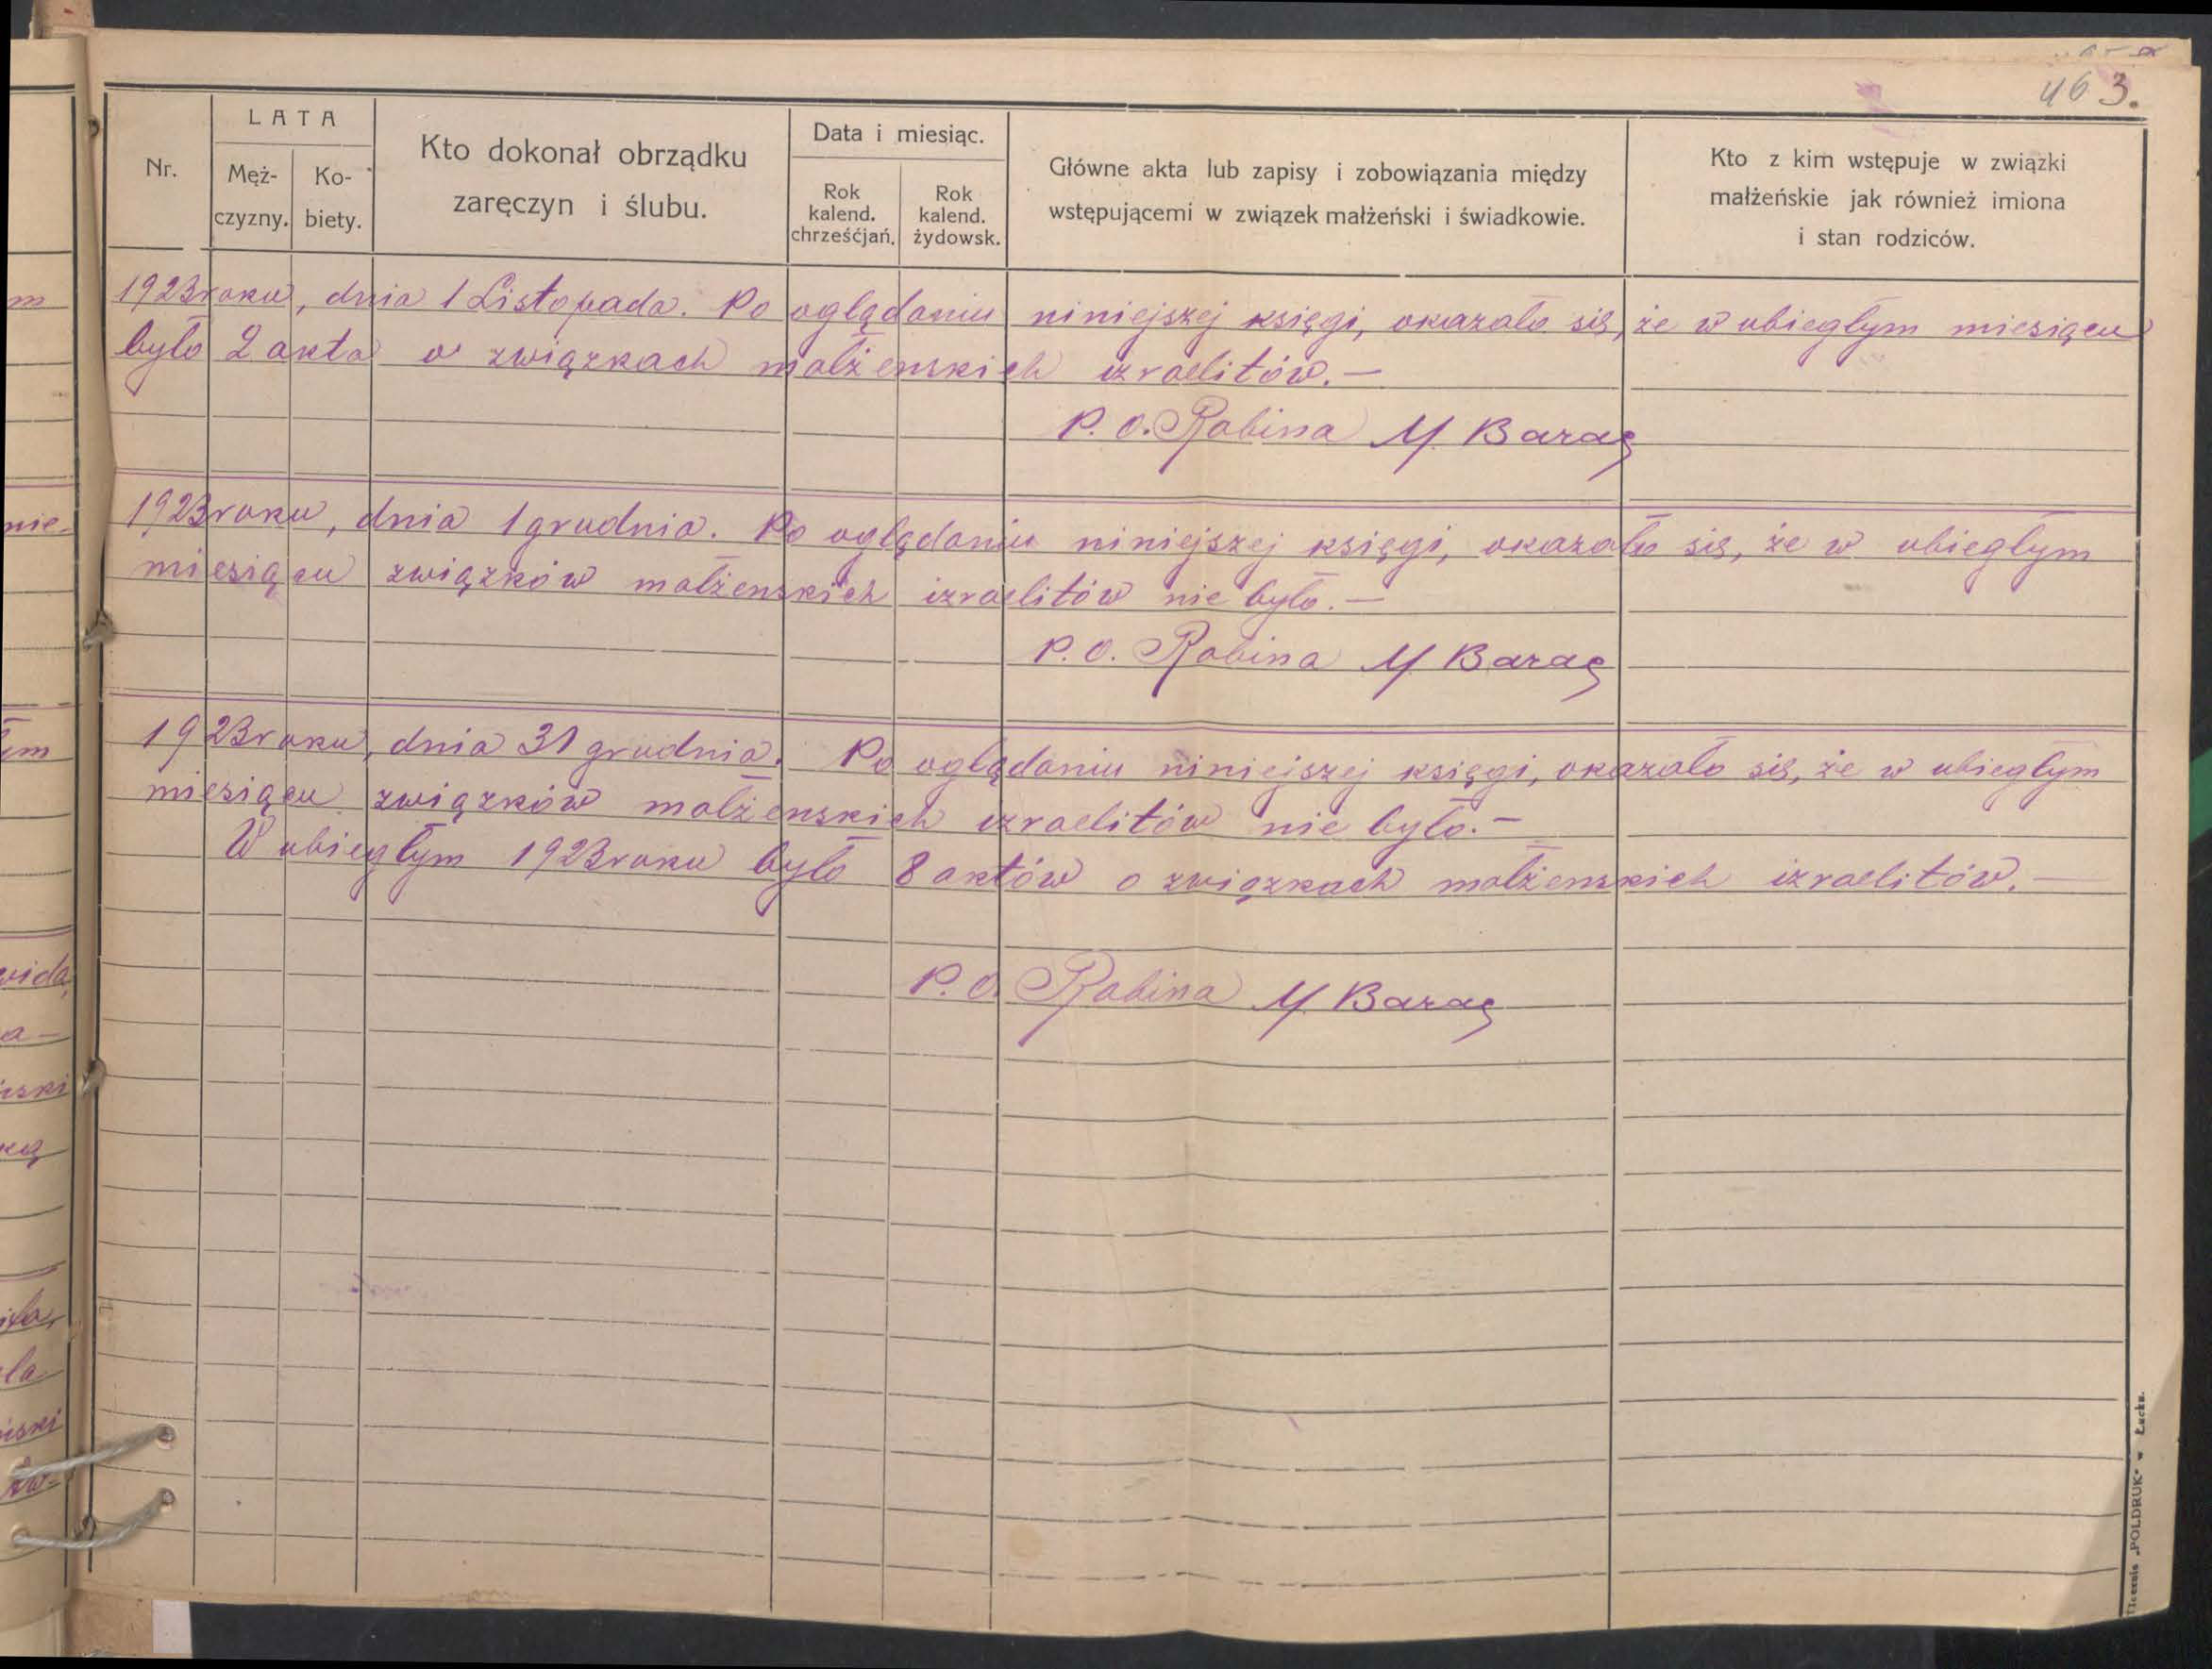 463.
Nr.
LATA
Męż-
czyzny.
Ko-
biety.
Kto dokonał obrządku
zaręczyn i ślubu.
Data i miesiąc.
Rok
kalend.
chrześćjań.
Rok
kalend.
żydowsk.
Główne akta lub zapisy i zobowiązania między
wstępującemi w związek małżeński i świadkowie.
Kto z kim wstępuje w związki
małżeńskie jak również imiona
i stan rodziców.
1923 roku, dnia 1 Listopada. Po oglądaniu niniejszej księgi, okazało się, że w ubiegłym miesiącu
było 2 akta o związkach małżenskich izraelitów.—
P. O. Rabina M Barag
1923 roku, dnia 1 grudnia. Po oglądaniu niniejszej księgi, okazało się, że w ubiegłym
miesiącu związków małżenskich izraelitów nie było.—
P. O. Rabina M Barag
1923 roku, dnia 31 grudnia. Po oglądaniu niniejszej księgi, okazało się, że w ubiegłym
miesiącu związków małżenskich izraelitów nie było.—
W ubiegłym 1923 roku było 8 aktów o związkach małżenskich izraelitów.—
P. O. Rabina M Barag
"POLDRUK" w Łucku.